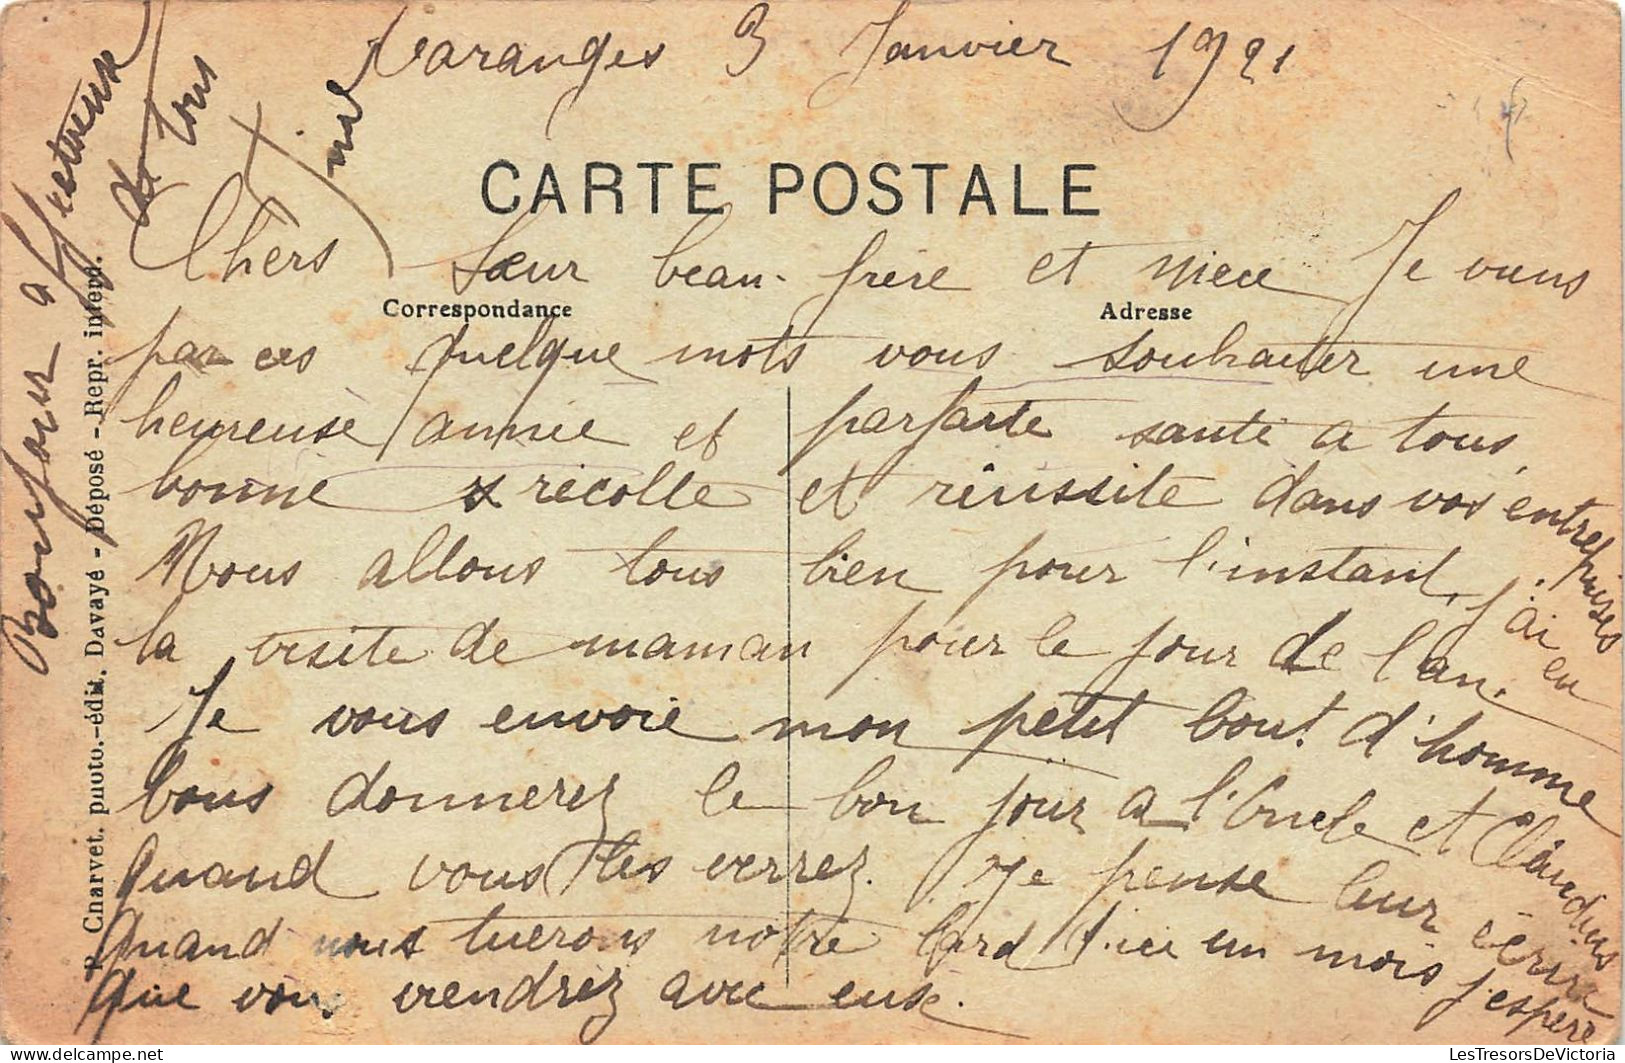 Varanges 3 Janvier 1921
CARTE POSTALE
Chers Sœur beau-frère et niece Je viens
Correspondance
Adresse
par ces quelque mots vous souhaiter une
heureuse année et parfaite santé a tous,
bonne récolte et réussite dans vos entreprises
Nous allons tous bien pour l'instant, j'ai eu
la visite de maman pour le jour de l'an.
Je vous envoie mon petit bout d'homme
vous donnerez le bon jour a l'Oncle et Claudius
quand vous les verrez. Je pense leur écrire
quand nous tuerons notre lard d'ici un mois j'espère
que vous viendrez avec euse.
Bonjour affectueuse
de tous
R. Charvet, photo.-édit, Davayé - Déposé - Repr. interd.
LesTresorsDeVictoria